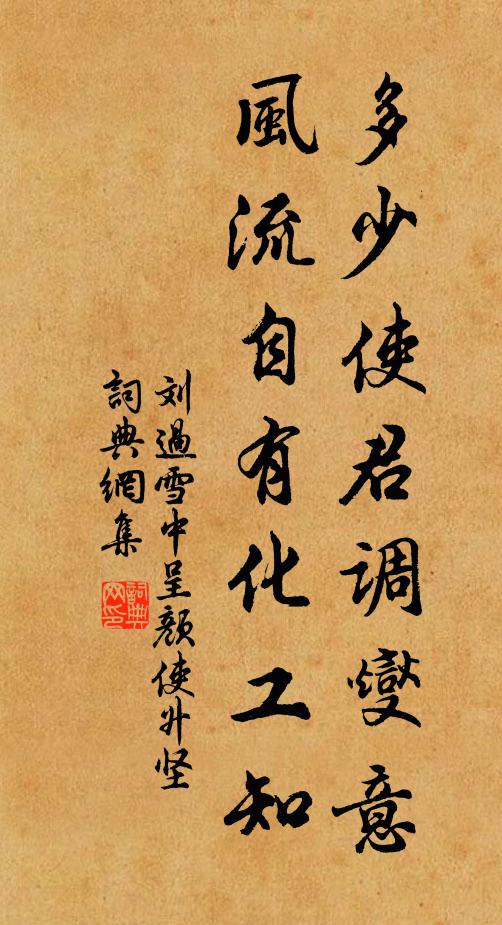 多少使君调燮意
風流自有化工知
刘過雪中呈顏使升坚
詞典網集
詞典网印